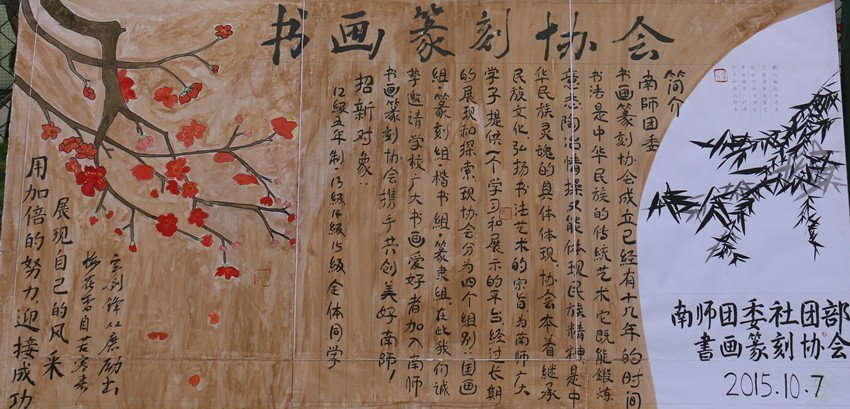 书画篆刻协会
简介
南师团委
书画篆刻协会成立已经有十几年的时间
书法是中华民族的传统艺术它既能锻炼
意志陶冶情操又能体现民族精神是中
华民族灵魂的具体体现.协会本着继承
民族文化,弘扬书法艺术的宗旨为南师广大
学子提供一个学习和展示的平台经过长期
的展现和探索,现协会分为四个组别:国画
组·篆刻组·楷书组·篆隶组.在此我们诚
挚邀请学校广大书画爱好者加入南师
书画篆刻协会携手共创美好南师!
招新对象:
12级五年制·13级14级15级全体同学
宝剑锋从磨励出
梅花香自苦寒来
展现自己的风采
用加倍的努力迎接成功
南师团委社团部
书画篆刻协会
2015.10.7